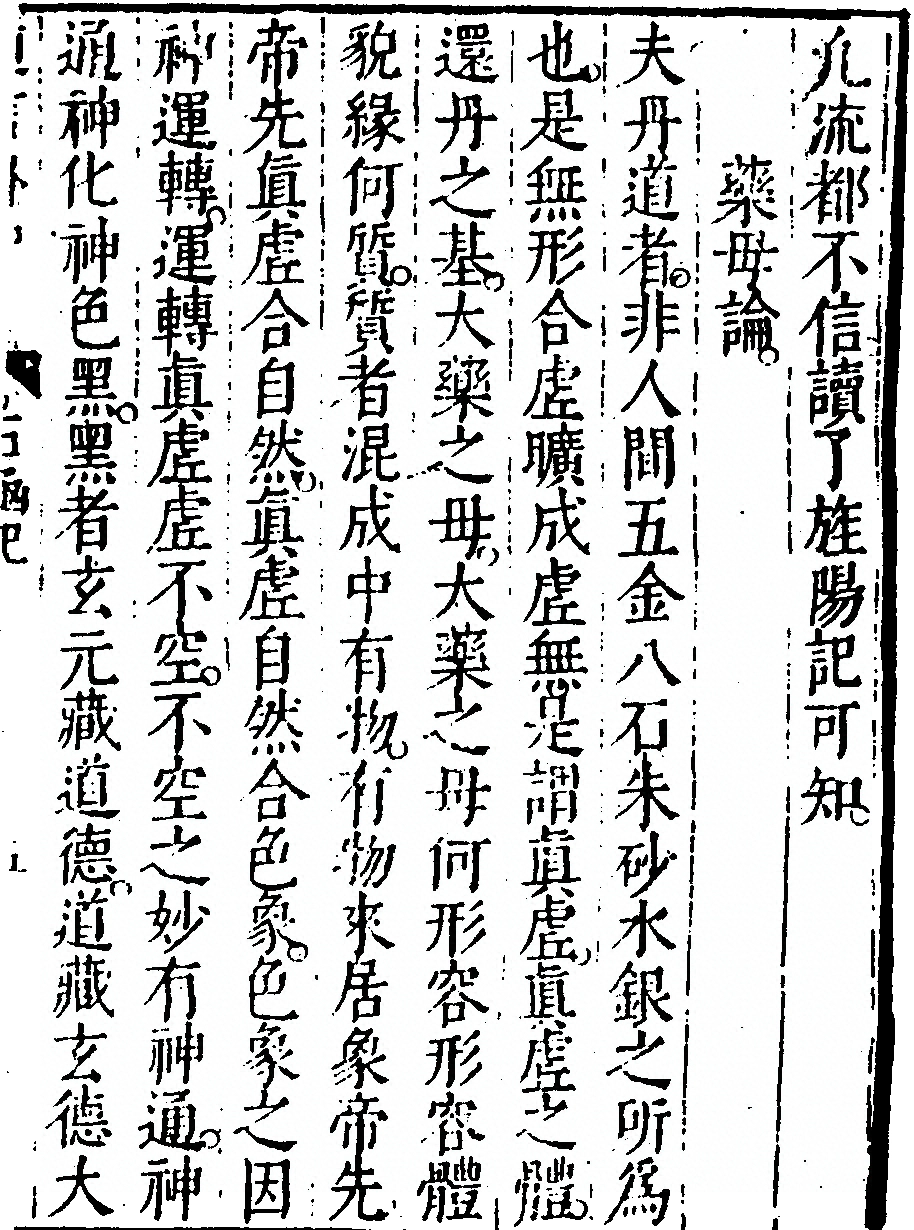 九流都不信讀了旌陽記可知
藥母論
夫丹道者非人間五金八石朱砂水銀之所爲
也是無形合虛曠成虛無是謂眞虛眞虛之體
還丹之基大藥之母大藥之母何形容形容體
貌緣何質質者混成中有物有物來居象帝先
帝先眞虛合自然眞虛自然合色象色象之因
神運轉運轉眞虛虛不空不空之妙有神通神
通神化神色黑黑者玄元藏道德道藏玄德大